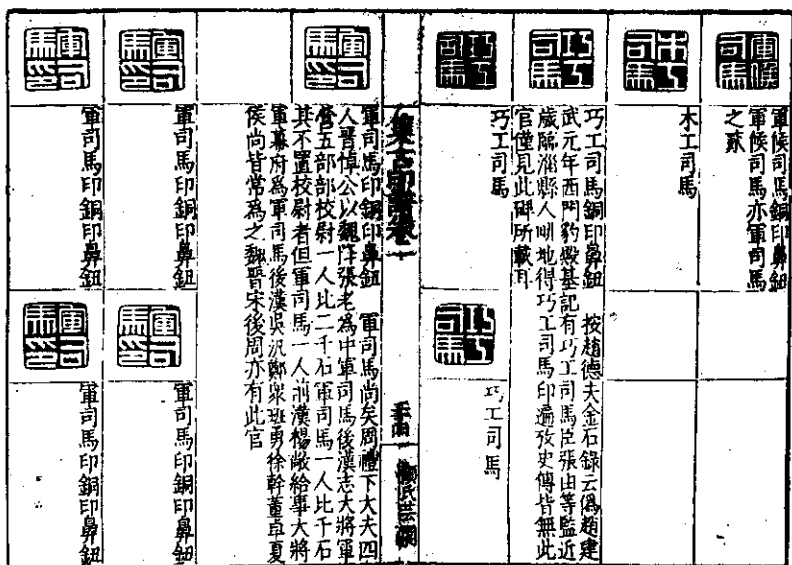 軍候司馬
軍候司馬銅印鼻鈕
軍候司馬亦軍司馬
之亦
木工司馬
木工司馬
巧工司馬
巧工司馬銅印鼻鈕 按趙德夫金石錄云偽趙建
武元年西門豹殿基記有巧工司馬臣張由等監近
歲臨淄縣人耕地得巧工司馬印遍攷史傳皆無此
官僅見此碑所載耳
巧工司馬
巧工司馬
巧工司馬
巧工司馬
集古印譜卷
顧氏芸閣
軍司馬印
軍司馬印銅印鼻鈕 軍司馬尚矣周禮下大夫四
人晉悼公以魏絳張老為中軍司馬後漢志大將軍
營五部部校尉一人比二千石軍司馬一人比千石
其不置校尉者但軍司馬一人前漢楊敞給事大將
軍幕府為軍司馬後漢吳汎鄭眾班勇徐幹董卓夏
侯尚皆常為之魏晉宋後周亦有此官
軍司馬印
軍司馬印銅印鼻鈕
軍司馬印
軍司馬印銅印鼻鈕
軍司馬印
軍司馬印銅印鼻鈕
軍司馬印
軍司馬印銅印鼻鈕